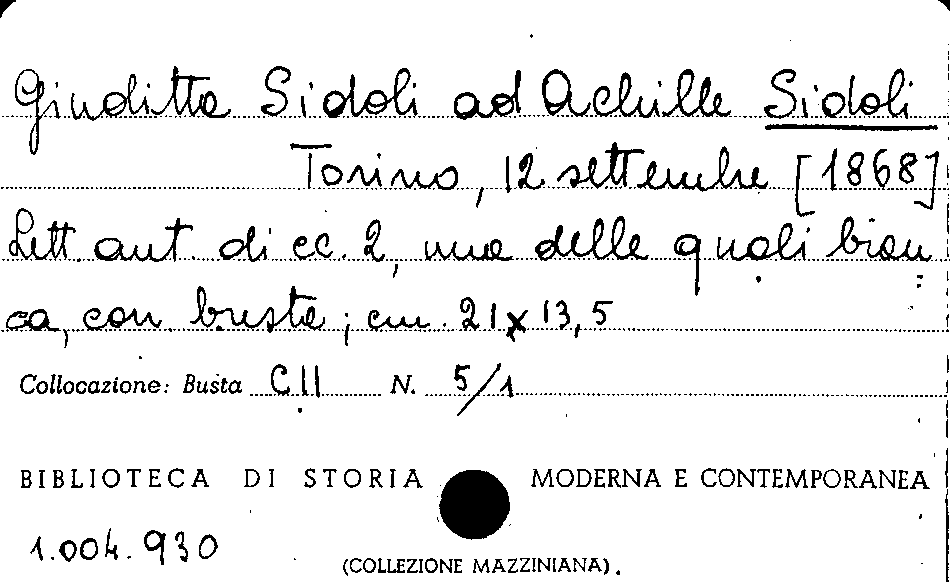 Giuditta Sidoli ad Achille Sidoli
Torino, 12 settembre [1868]
Lett. aut. di cc. 2, una delle quali bian
ca, con busta; cm. 21x13,5
Collocazione: Busta C II N. 5/1
BIBLIOTECA DI STORIA MODERNA E CONTEMPORANEA
1.004.930
(COLLEZIONE MAZZINIANA).